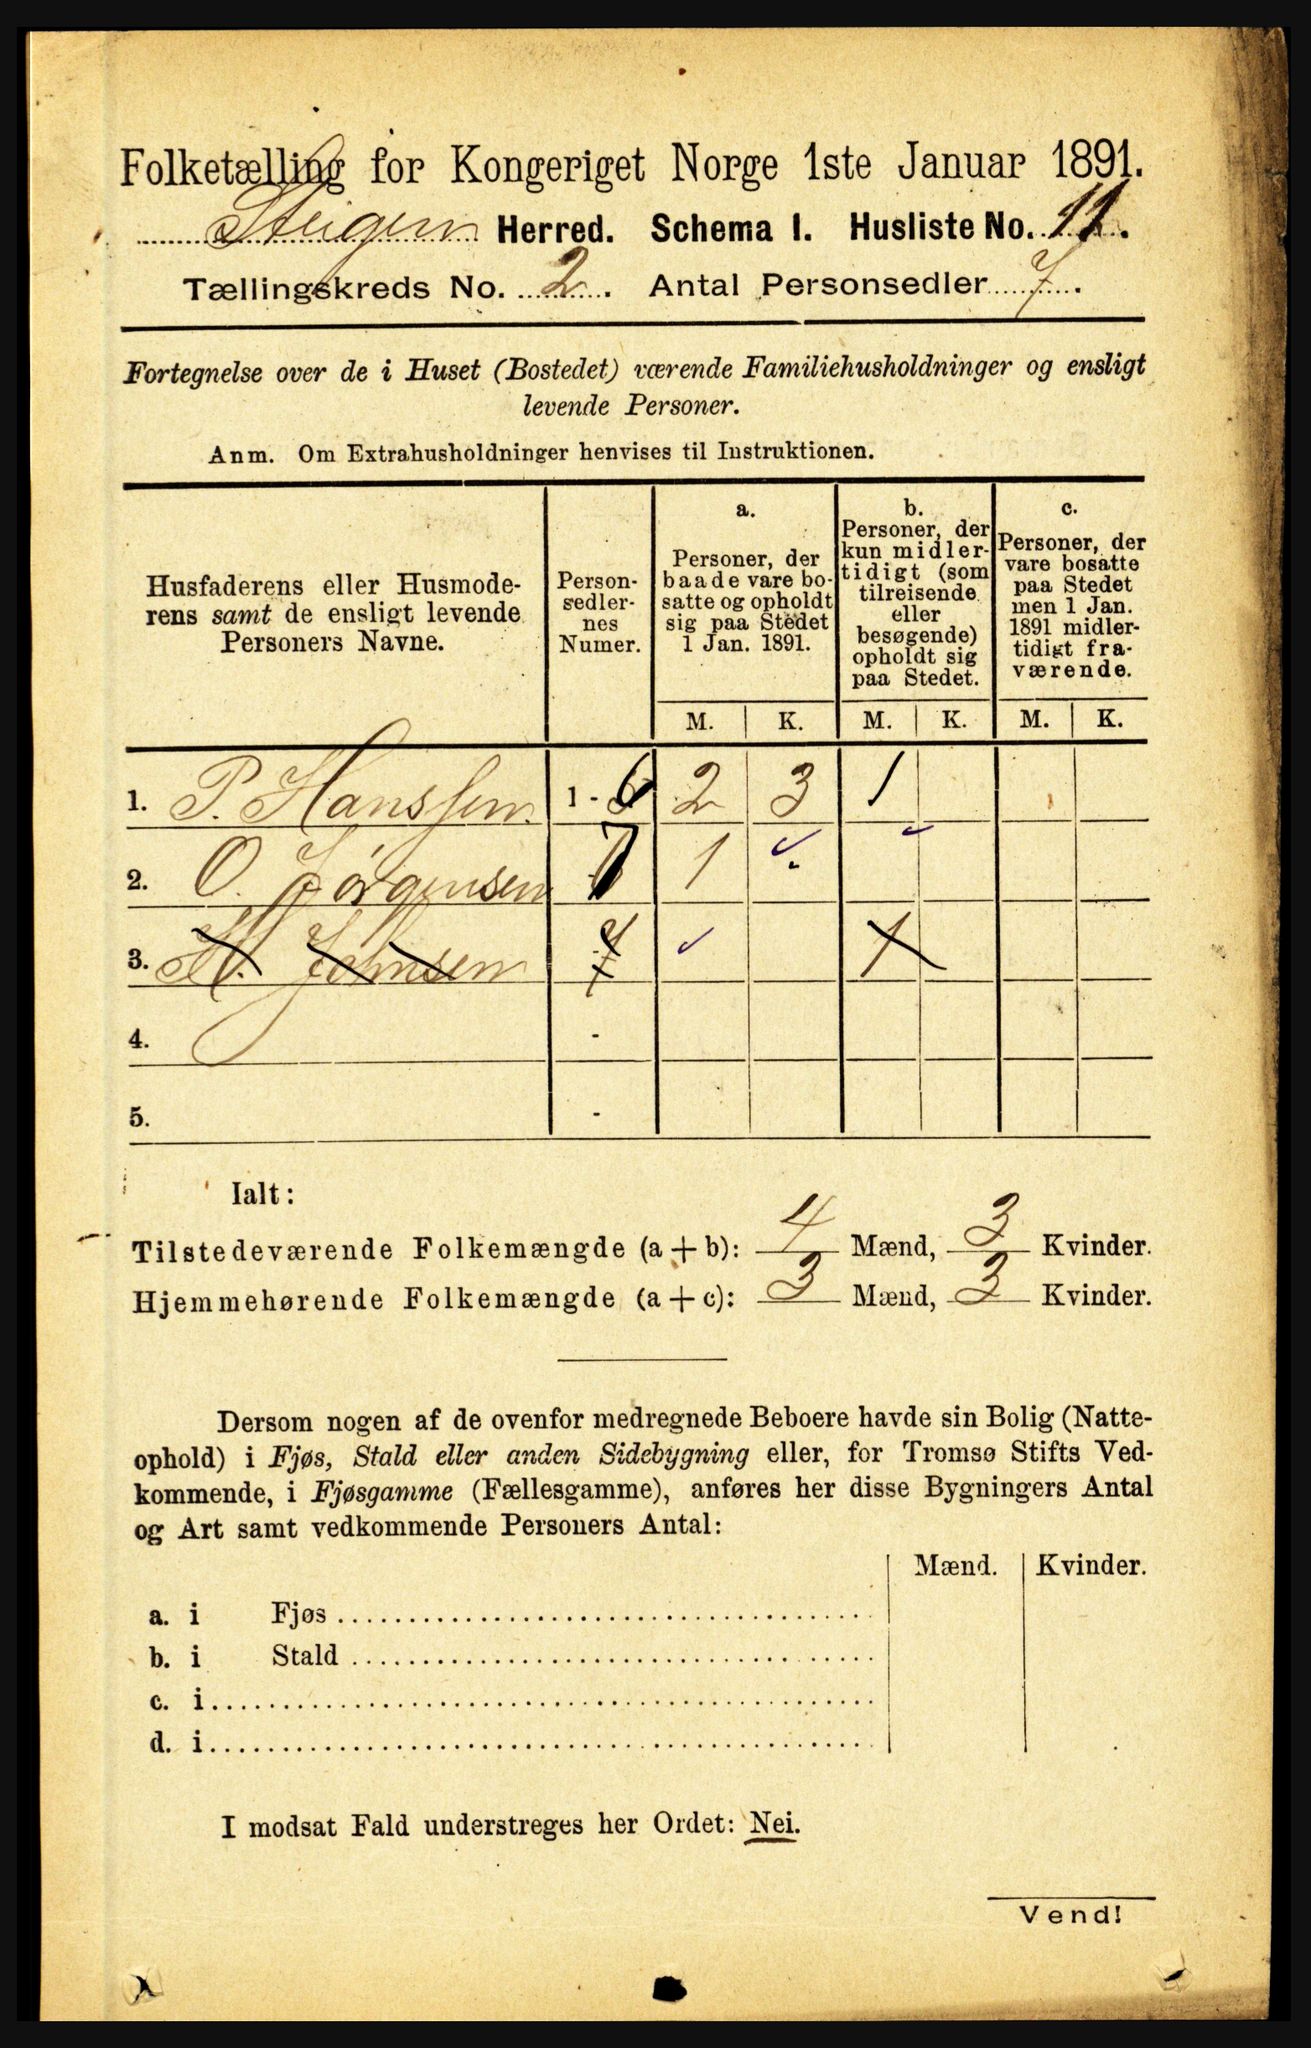 Folketælling for Kongeriget Norge 1ste Januar 1891.
Steigen Herred. Schema I. Husliste No. 11.
Tællingskreds No. 2. Antal Personsedler 7.
Fortegnelse over de i Huset (Bostedet) værende Familiehusholdninger og ensligt
levende Personer.
Anm. Om Extrahusholdninger henvises til Instruktionen.
Husfaderens eller Husmode-
rens samt de ensligt levende
Personers Navne.
Person-
sedler-
nes
Numer.
a.
Personer, der
baade vare bo-
satte og opholdt
sig paa Stedet
1 Jan. 1891.
b.
Personer, der
kun midler-
tidigt (som
tilreisende
eller
besøgende)
opholdt sig
paa Stedet.
c.
Personer, der
vare bosatte
paa Stedet
men 1 Jan.
1891 midler-
tidigt fra-
værende.
M. K. M. K. M. K.
1. P. Hanssen 1 - 6 2 3 1
2. O. Jørgensen 7 1
3. M. Johnsen 7 1
4. -
5. -
Ialt:
Tilstedeværende Folkemængde (a + b): 4 Mænd, 3 Kvinder.
Hjemmehørende Folkemængde (a + c): 3 Mænd, 3 Kvinder.
Dersom nogen af de ovenfor medregnede Beboere havde sin Bolig (Natte-
ophold) i Fjøs, Stald eller anden Sidebygning eller, for Tromsø Stifts Ved-
kommende, i Fjøsgamme (Fællesgamme), anføres her disse Bygningers Antal
og Art samt vedkommende Personers Antal:
Mænd. Kvinder.
a. i Fjøs
b. i Stald
c. i
d. i
I modsat Fald understreges her Ordet: Nei.
Vend!